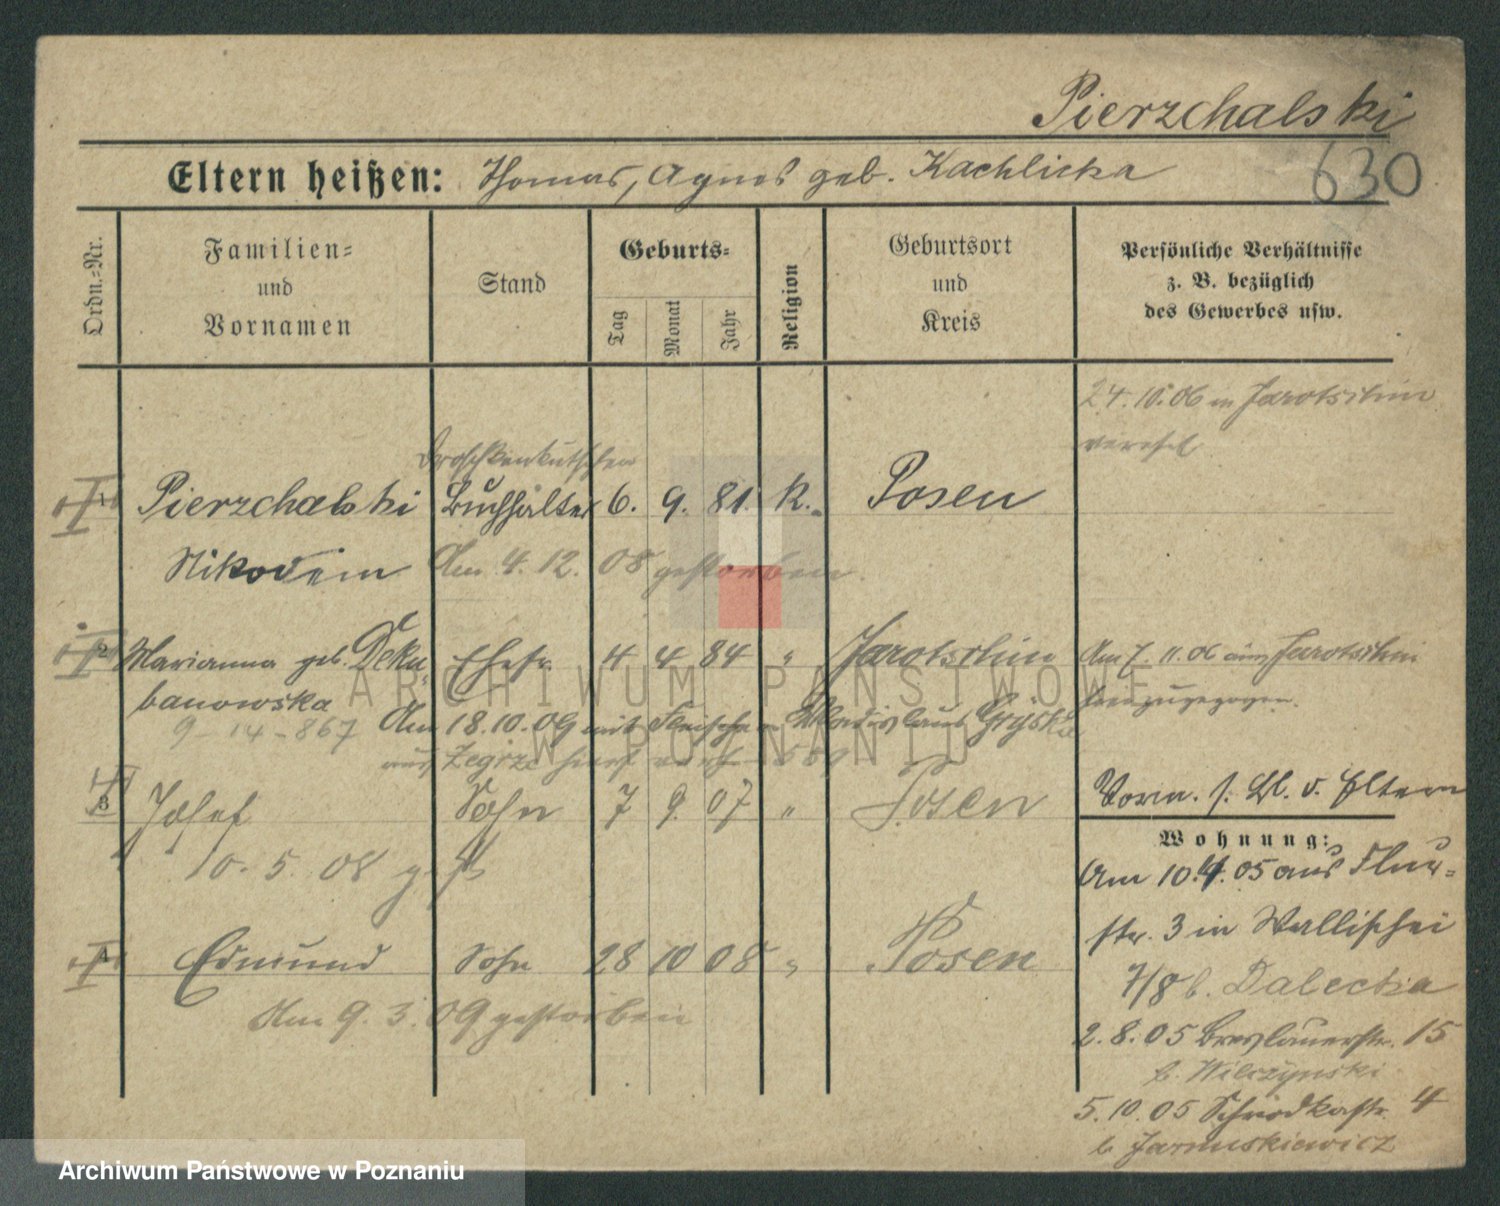 Pierzchalski
630
Eltern heißen: Thomas, Agnes geb. Kachlicka
Ordn.-Nr.
Familien-
und
Vornamen
Stand
Geburts-
Tag
Monat
Jahr
Religion
Geburtsort
und
Kreis
Persönliche Verhältnisse
z. B. bezüglich
des Gewerbes usw.
24.10.06 in Jarotschin
verehel
Droschkenkutscher
1 Pierzchalski Buchhalter 6. 9. 81. K. Posen
Nikodem Am 4. 12. 08 gestorben.
2 Marianna geb. Deku- Ehefr. 4 4 84 " Jarotschin Am 7. 11. 06 aus Jarotschin
banowska hinzugezogen.
9 - 14 - 867 Am 18.10.09 mit Wladislaus
aus Zegrze
3 Josef Sohn 7 9. 07 " Posen Vorm. s. Bl. d. Eltern
10. 5. 08 gest
Wohnung:
Am 10.4.05 aus Flur-
str. 3 in Wallischei
7/8 b. Dalecka
4 Edmund Sohn 28 10 08 " Posen
Am 9. 3. 09 gestorben
2. 8. 05 Breslauerstr. 15
b. Wilczynski
5. 10. 05 Schrodkastr. 4
b. Jaruuskiewicz
ARCHIWUM PAŃSTWOWE
W POZNANIU
Archiwum Państwowe w Poznaniu